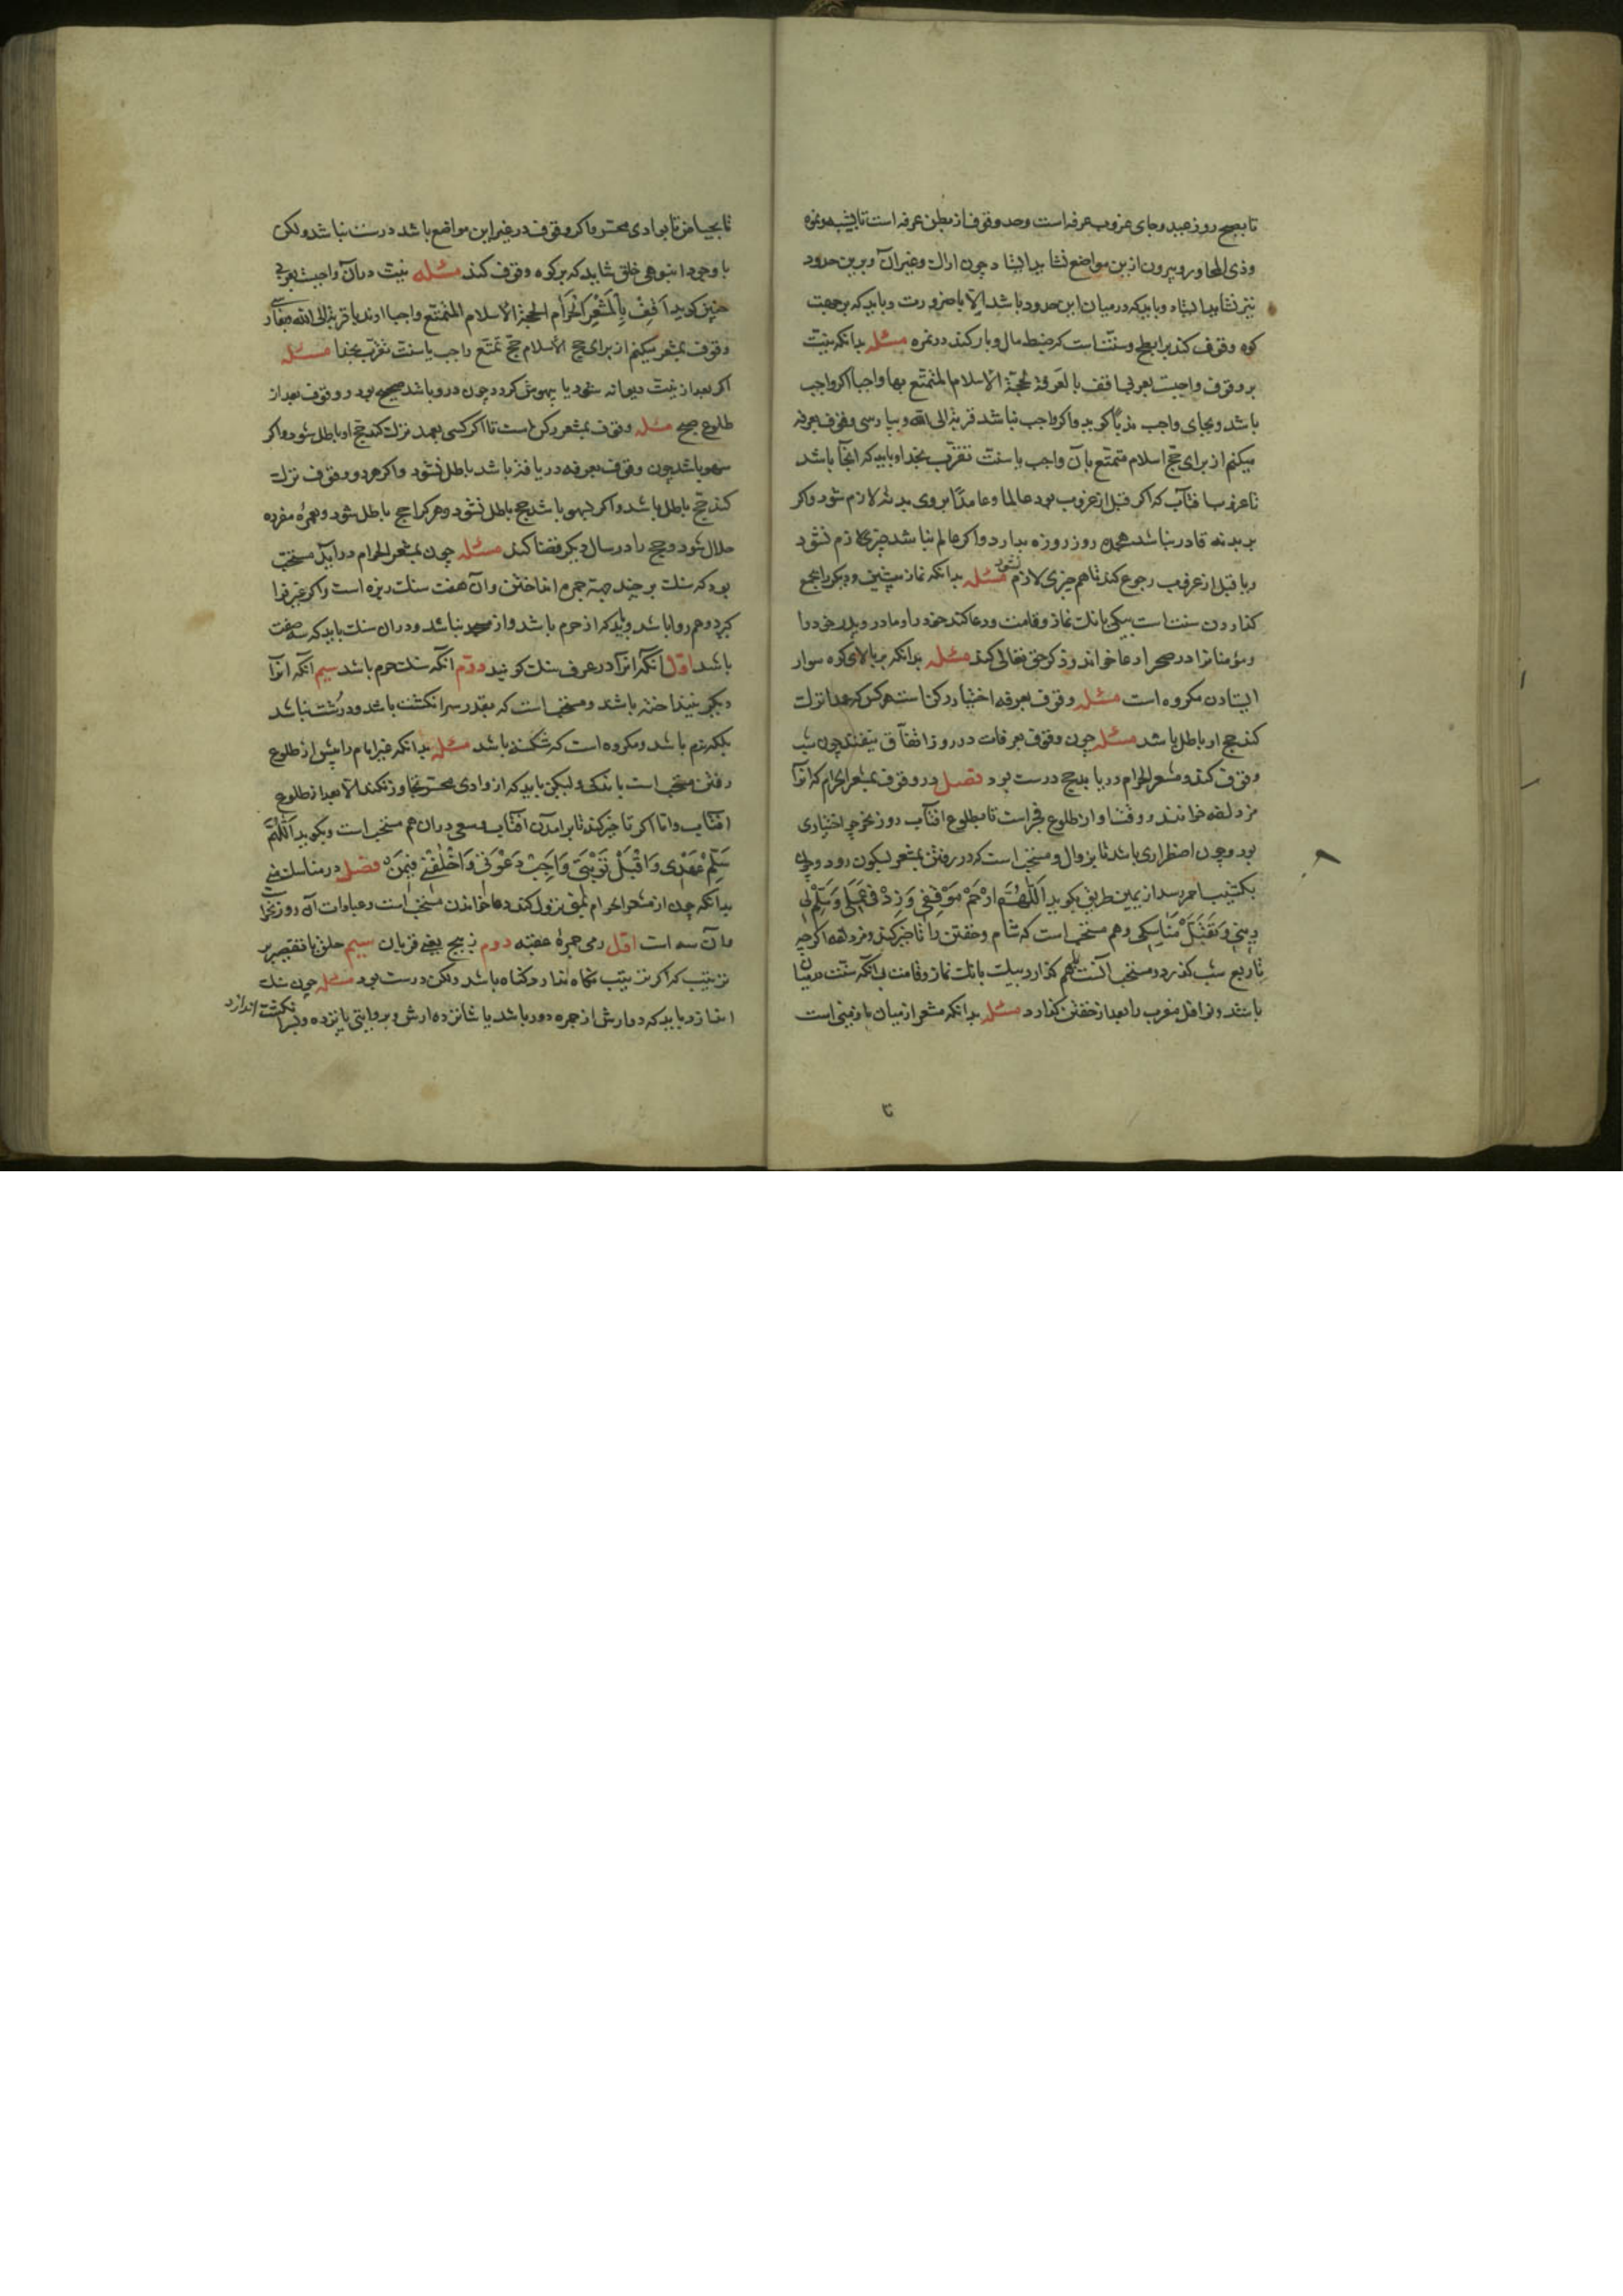 تا بصبح روز عید و جای غروب عرفه است و حد وقوف از بطن عرفه است تا بثبیه و نمره
و ذی المجاز و بیرون ازین مواضع نشاید ایستاد چون اراك و غیر آن و برین حدود
نیز نشاید ایستاد و باید که در میان این حدود باشد الا با ضرورت و باید که بر جهت
کوه وقوف کند برابطح و سنت است که ضبط مال و بار کند در نمره مسئله بدانکه نیت
بر وقوف واجبست بعربی اقف بالعرفة لحجة الاسلام المتمتع بها واجبا اگر واجب
باشد و بجای واجب ندبا گوید و اگر واجب نباشد قربة الی الله و بپارسی وقوف بعرفه
میکنم از برای حج اسلام متمتع بآن واجب یا سنت تقرب بخدا و باید که آنجا باشد
تا غروب آفتاب که اگر قبل از غروب بود عالما و عامدا بروی بدنه لازم شود و اگر
بر بدنه قادر نباشد هجده روز روزه بدارد و اگر عالم نباشد چیزی لازم نشود
و یا قبل از غروب رجوع کند تا هم چیزی لازم نشود مسئله بدانکه نماز پیشین و دیگر را بجمع
گذاردن سنت است بیکی بانك نماز و قامت و دعا کند خود را و مادر و پدر خود را
و مؤمنانرا در صحرا دعا خواند و ذکر حق تعالی کند مسئله بدانکه بر بالای کوه سوار
ایستادن مکروه است مسئله وقوف بعرفه اختیار رکن است هر کس که عمدا ترك
کند حج او باطل باشد مسئله چون وقوف بعرفات در روز اتفاق نیفتد چون شب
وقوف کند و مشعر الحرام دریابد حج درست بود فصل در وقوف بمشعر الحرام که آنرا
مزدلفه خوانند و وقت او از طلوع فجر است تا بطلوع آفتاب روز نحر چو اختیاری
بود و چون اضطراری باشد تا بزوال و مستحب است که در رفتن بمشعر بسکون رود و چون
بکثیب احمر رسد از یمین طریق بگوید اَللّٰهُمَّ ارْحَمْ مَوْقِفی وَ زِدْ فی عَمَلی وَ سَلِّمْ لی
دینی وَ تَقَبَّلْ مَنَاسِکی و هم مستحب است که شام و خفتن را تا خیر کند و مزدلفه اگر چه
تا ربع شب گذرد و مستحب آنست که بهم گذارد بیك بانك نماز و قامت بی آنکه سنت در میان
باشد و نوافل مغرب را بعد از خفتن گذارد مسئله بدانکه مشعر از میان مازمین است
تا
تا بحیاض تا بوادی محسر و اگر وقوف در غیر این مواضع باشد درست نباشد و لکن
با وجود انبوهی خلق شاید که بر کوه وقوف کند مسئله نیت در آن واجبست بعربی
چنین گوید اَقِفُ بِالْمَشْعَرِ الْحَرَام لحجة الاسلام المتمتع واجبا او ندبا قربة الی الله بپارسی
وقوف بمشعر میکنم از برای حج الاسلام حج تمتع واجب یا سنت تقرب بخدا مسئله
اگر بعد از نیت دیوانه شود یا بیهوش گردد چون درو باشد صحیح بود و وقوف بعد از
طلوع صبح مسئله وقوف بمشعر رکن است تا اگر کسی بعمد ترك کند حج او باطل شود و اگر
سهو باشد چون وقوف بعرفه دریافته باشد باطل نشود و اگر هر دو وقوف ترك
کند حج باطل باشد و اگر بسهو باشد حج باطل نشود و هر کرا حج باطل شود و بعمره مفرده
حلال شود و حج را در سال دیگر قضا کند مسئله چون بمشعر الحرام درآید مستحب
بود که سنك برچیند جهة جمره انداختن و آن هفت سنك ریزه است و اگر غیر آنرا
گیرد و هم روا باشد و باید که از حرم باشد و از مسجد نباشد و در آن سنك باید که سه صفت
باشد اول آنکه آنرا در عرف سنك گویند دوم آنکه سنك حرم باشد سیم آنکه آنرا
دیگر نینداخته باشند و مستحب است که بقدر سر انگشت باشد و درشت نباشد
بلکه نرم باشد و مکروه است که شکسته باشد مسئله بدانکه غیر امام را پیش از طلوع
رفتن مستحب است باندکی و لیکن باید که از وادی محسر تجاوز نکند الا بعد از طلوع
آفتاب و اما اگر تاخیر کند تا برآمدن آفتاب و سعی در آن هم مستحب است و بگوید اَللّٰهُمَّ
سَلِّمْ عَهْدی وَ اقْبَلْ تَوْبَتی وَ اَجِبْ دَعْوَتی وَ اخْلُفْنی فیمَنْ فصل در مناسك منی
بدانکه چون از مشعر الحرام بمنی نزول کند دعا خواندن مستحب است و عبادات آن روز نحر
و آن سه است اول رمی جمرهٔ عقبه دوم ذبیح یعنی قربان سیم حلق یا تقصیر بر
ترتیب که اگر ترتیب نگاه ندارد گناه باشد ولکن درست بود مسئله چون سنك
اندازد باید که ده ارش از جمره دور باشد یا شانزده ارش و بروایتی پانزده و بسر انگشت اندازد